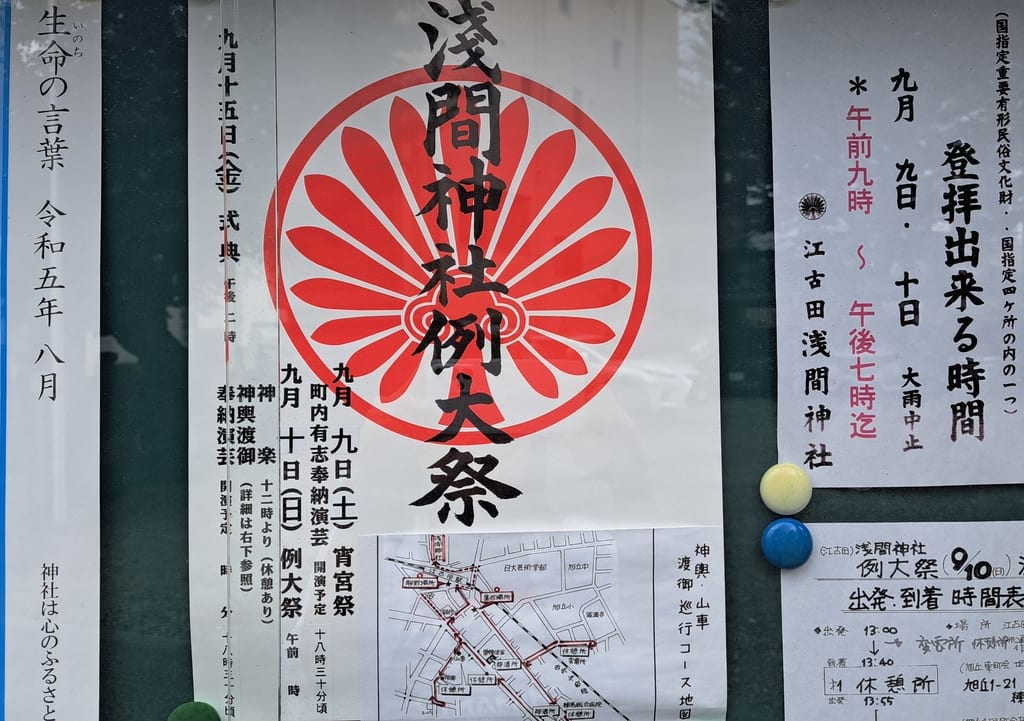 生命の言葉 令和五年 八月
いのち
神社は心のふるさと
浅間神社例大祭
九月 九日(土) 宵宮祭
町内有志奉納演芸 開演予定 十八時三十分頃
九月 十日(日) 例大祭 午前 時
神楽 十二時より(休憩あり)
神輿渡御 (詳細は右下参照)
奉納演芸 開演予定 時 分
九月十五日(金) 式典 午後二時
神輿 山車
渡御巡行コース地図
日大芸術学部
旭丘中
旭丘小
休憩所
休憩所
休憩所
休憩所
(国指定重要有形民俗文化財・国指定四ケ所の内の一つ)
登拝出来る時間
九月 九日・十日 大雨中止
*午前九時 ~ 午後七時迄
江古田浅間神社
(江古田)浅間神社
例大祭 9/10(日)
出発・到着 時間表
出発 13:00
場所 江古田
到着 13:40
休憩所
旭丘1-21
出発 13:55